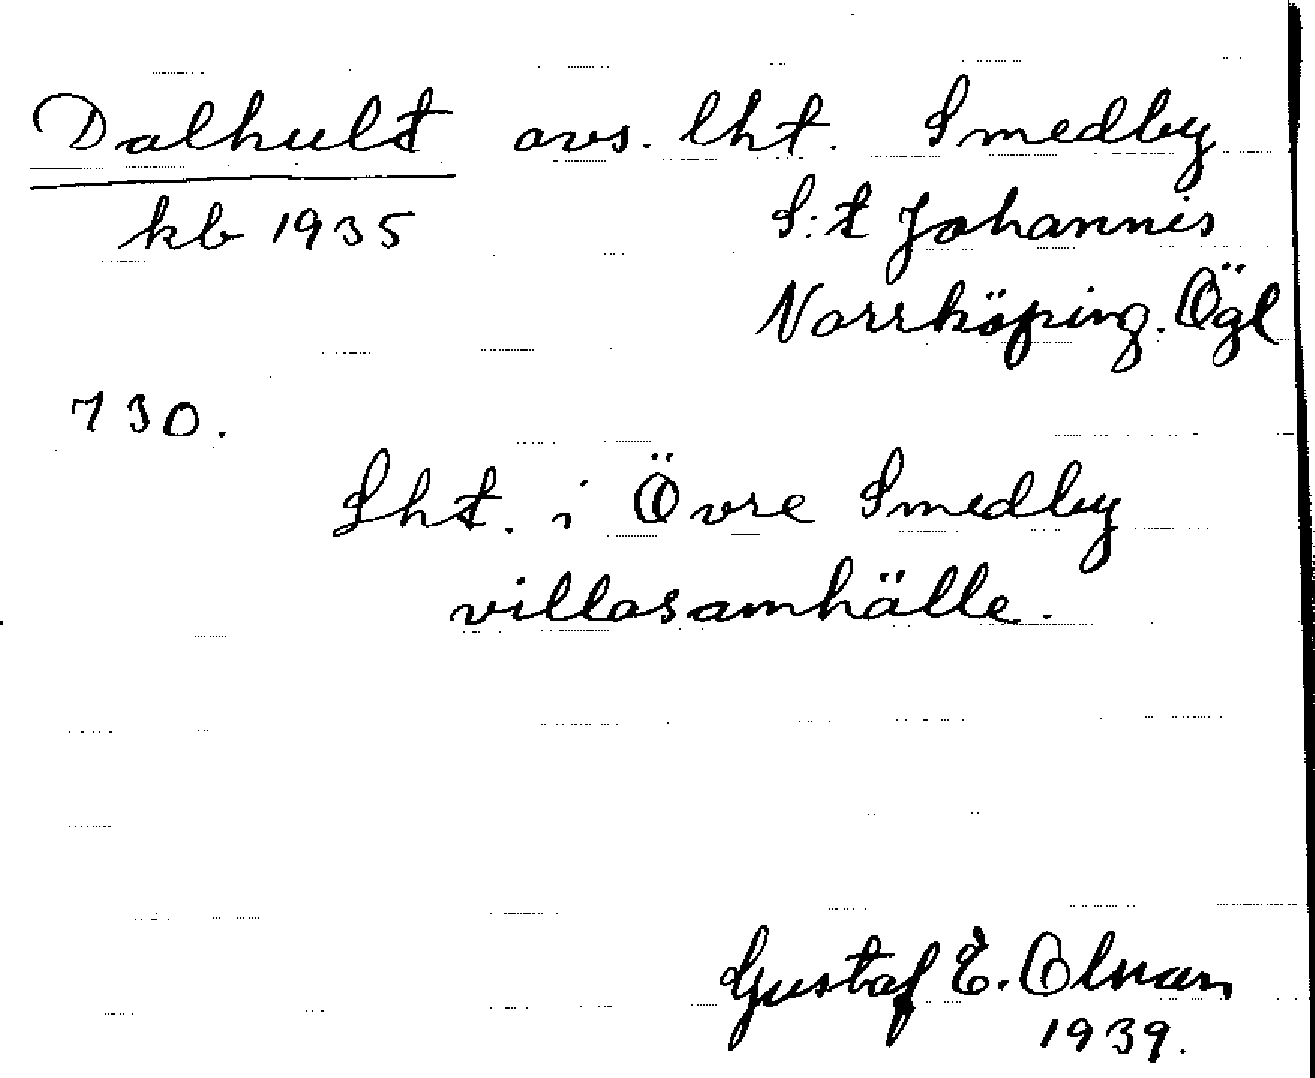 Dalhult avs. lht. Smedby
kb 1935 S:t Johannis
Norrköping. Ögl
730.
Lht. i Övre Smedby
villasamhälle.
Gustaf E. Olman
1939.